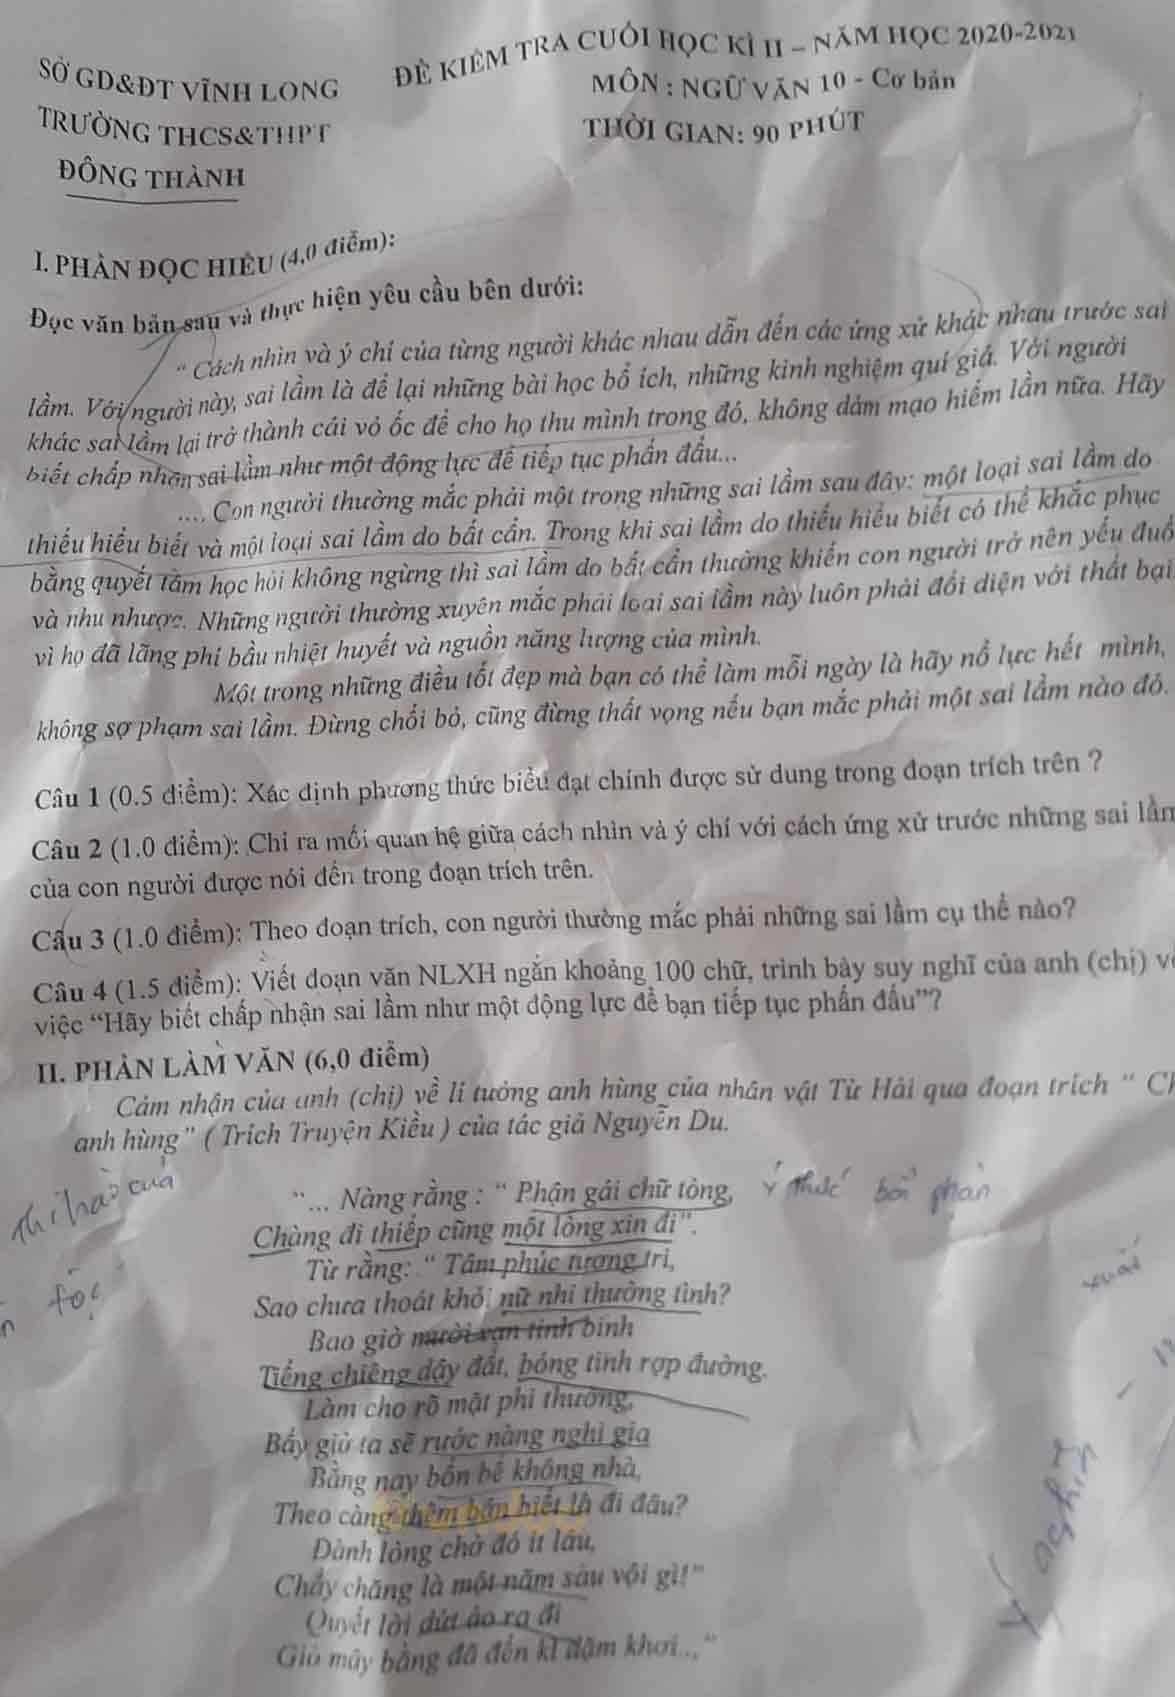 SỞ GD&ĐT VĨNH LONG
TRƯỜNG THCS&THPT
ĐÔNG THÀNH
ĐỀ KIỂM TRA CUỐI HỌC KÌ II – NĂM HỌC 2020-2021
MÔN : NGỮ VĂN 10 - Cơ bản
THỜI GIAN: 90 PHÚT
I. PHẦN ĐỌC HIỂU (4,0 điểm):
Đọc văn bản sau và thực hiện yêu cầu bên dưới:
“ Cách nhìn và ý chí của từng người khác nhau dẫn đến các ứng xử khác nhau trước sai
lầm. Với người này, sai lầm là để lại những bài học bổ ích, những kinh nghiệm quí giá. Với người
khác sai lầm lại trở thành cái vỏ ốc để cho họ thu mình trong đó, không dám mạo hiểm lần nữa. Hãy
biết chấp nhận sai lầm như một động lực để tiếp tục phấn đấu...
.... Con người thường mắc phải một trong những sai lầm sau đây: một loại sai lầm do
thiếu hiểu biết và một loại sai lầm do bất cẩn. Trong khi sai lầm do thiếu hiểu biết có thể khắc phục
bằng quyết tâm học hỏi không ngừng thì sai lầm do bất cẩn thường khiến con người trở nên yếu đuố
và nhu nhược. Những người thường xuyên mắc phải loại sai lầm này luôn phải đối diện với thất bại
vì họ đã lãng phí bầu nhiệt huyết và nguồn năng lượng của mình.
Một trong những điều tốt đẹp mà bạn có thể làm mỗi ngày là hãy nổ lực hết mình,
không sợ phạm sai lầm. Đừng chối bỏ, cũng đừng thất vọng nếu bạn mắc phải một sai lầm nào đó.
Câu 1 (0.5 điểm): Xác định phương thức biểu đạt chính được sử dung trong đoạn trích trên ?
Câu 2 (1.0 điểm): Chỉ ra mối quan hệ giữa cách nhìn và ý chí với cách ứng xử trước những sai lầm
của con người được nói đến trong đoạn trích trên.
Câu 3 (1.0 điểm): Theo đoạn trích, con người thường mắc phải những sai lầm cụ thể nào?
Câu 4 (1.5 điểm): Viết đoạn văn NLXH ngắn khoảng 100 chữ, trình bày suy nghĩ của anh (chị) v
việc “Hãy biết chấp nhận sai lầm như một động lực để bạn tiếp tục phấn đấu”?
II. PHẦN LÀM VĂN (6,0 điểm)
Cảm nhận của anh (chị) về lí tưởng anh hùng của nhân vật Từ Hải qua đoạn trích “ Ch
anh hùng ” ( Trích Truyện Kiều ) của tác giả Nguyễn Du.
“... Nàng rằng : “ Phận gái chữ tòng, ý thức bổn phận
Chàng đi thiếp cũng một lòng xin đi”.
Từ rằng: “ Tâm phúc tương tri,
Sao chưa thoát khỏi nữ nhi thường tình?
Bao giờ mười vạn tinh binh
Tiếng chiêng dậy đất, bóng tinh rợp đường.
Làm cho rõ mặt phi thường,
Bấy giờ ta sẽ rước nàng nghi gia
Bằng nay bốn bể không nhà,
Theo càng thêm bận biết là đi đâu?
Đành lòng chờ đó ít lâu,
Chầy chăng là một năm sau vội gì!”
Quyết lời dứt áo ra đi
Gió mây bằng đã đến kì dặm khơi...”